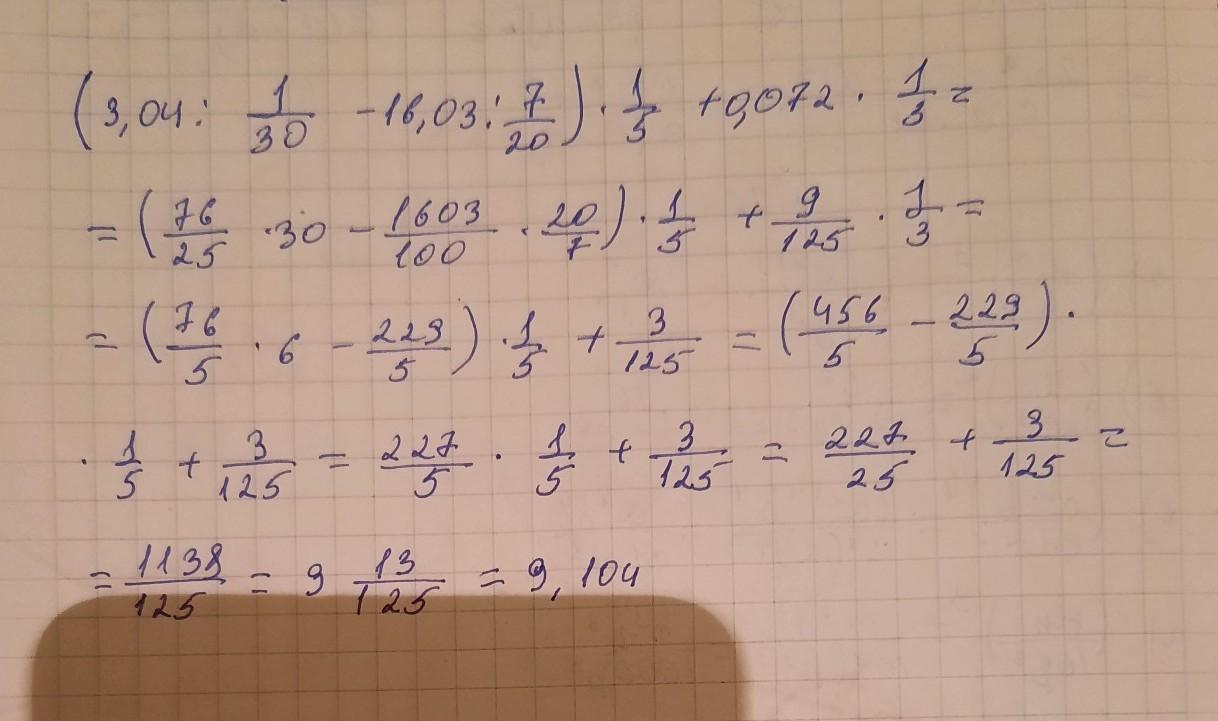 (3,04 : 1/30 - 16,03 : 7/20) · 1/5 + 0,072 · 1/3 =
= (76/25 · 30 - 1603/100 · 20/7) · 1/5 + 9/125 · 1/3 =
= (76/5 · 6 - 229/5) · 1/5 + 3/125 = (456/5 - 229/5) ·
· 1/5 + 3/125 = 227/5 · 1/5 + 3/125 = 227/25 + 3/125 =
= 1138/125 = 9 13/125 = 9,104